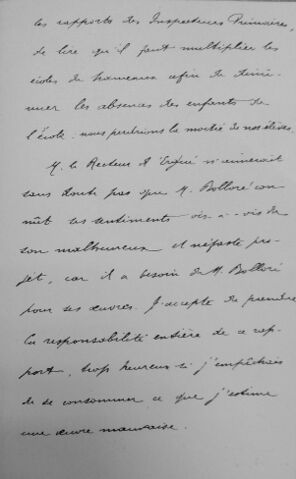 les rapports des Inspecteurs Primaires,
de lire qu'il faut multiplier les
écoles de hameaux afin de dimi-
nuer les absences des enfants de
l'école : nous perdrions la moitié de nos élèves.
M. le Recteur d'Ergué n'aimerait
sans doute pas que M. Bolloré con-
nût les sentiments vis-à-vis de
son malheureux et néfaste pro-
jet, car il a besoin de M. Bolloré
pour ses œuvres. J'accepte de prendre
la responsabilité entière de ce rap-
port, trop heureux si j'empêchais
de se consommer ce que j'estime
une œuvre mauvaise.